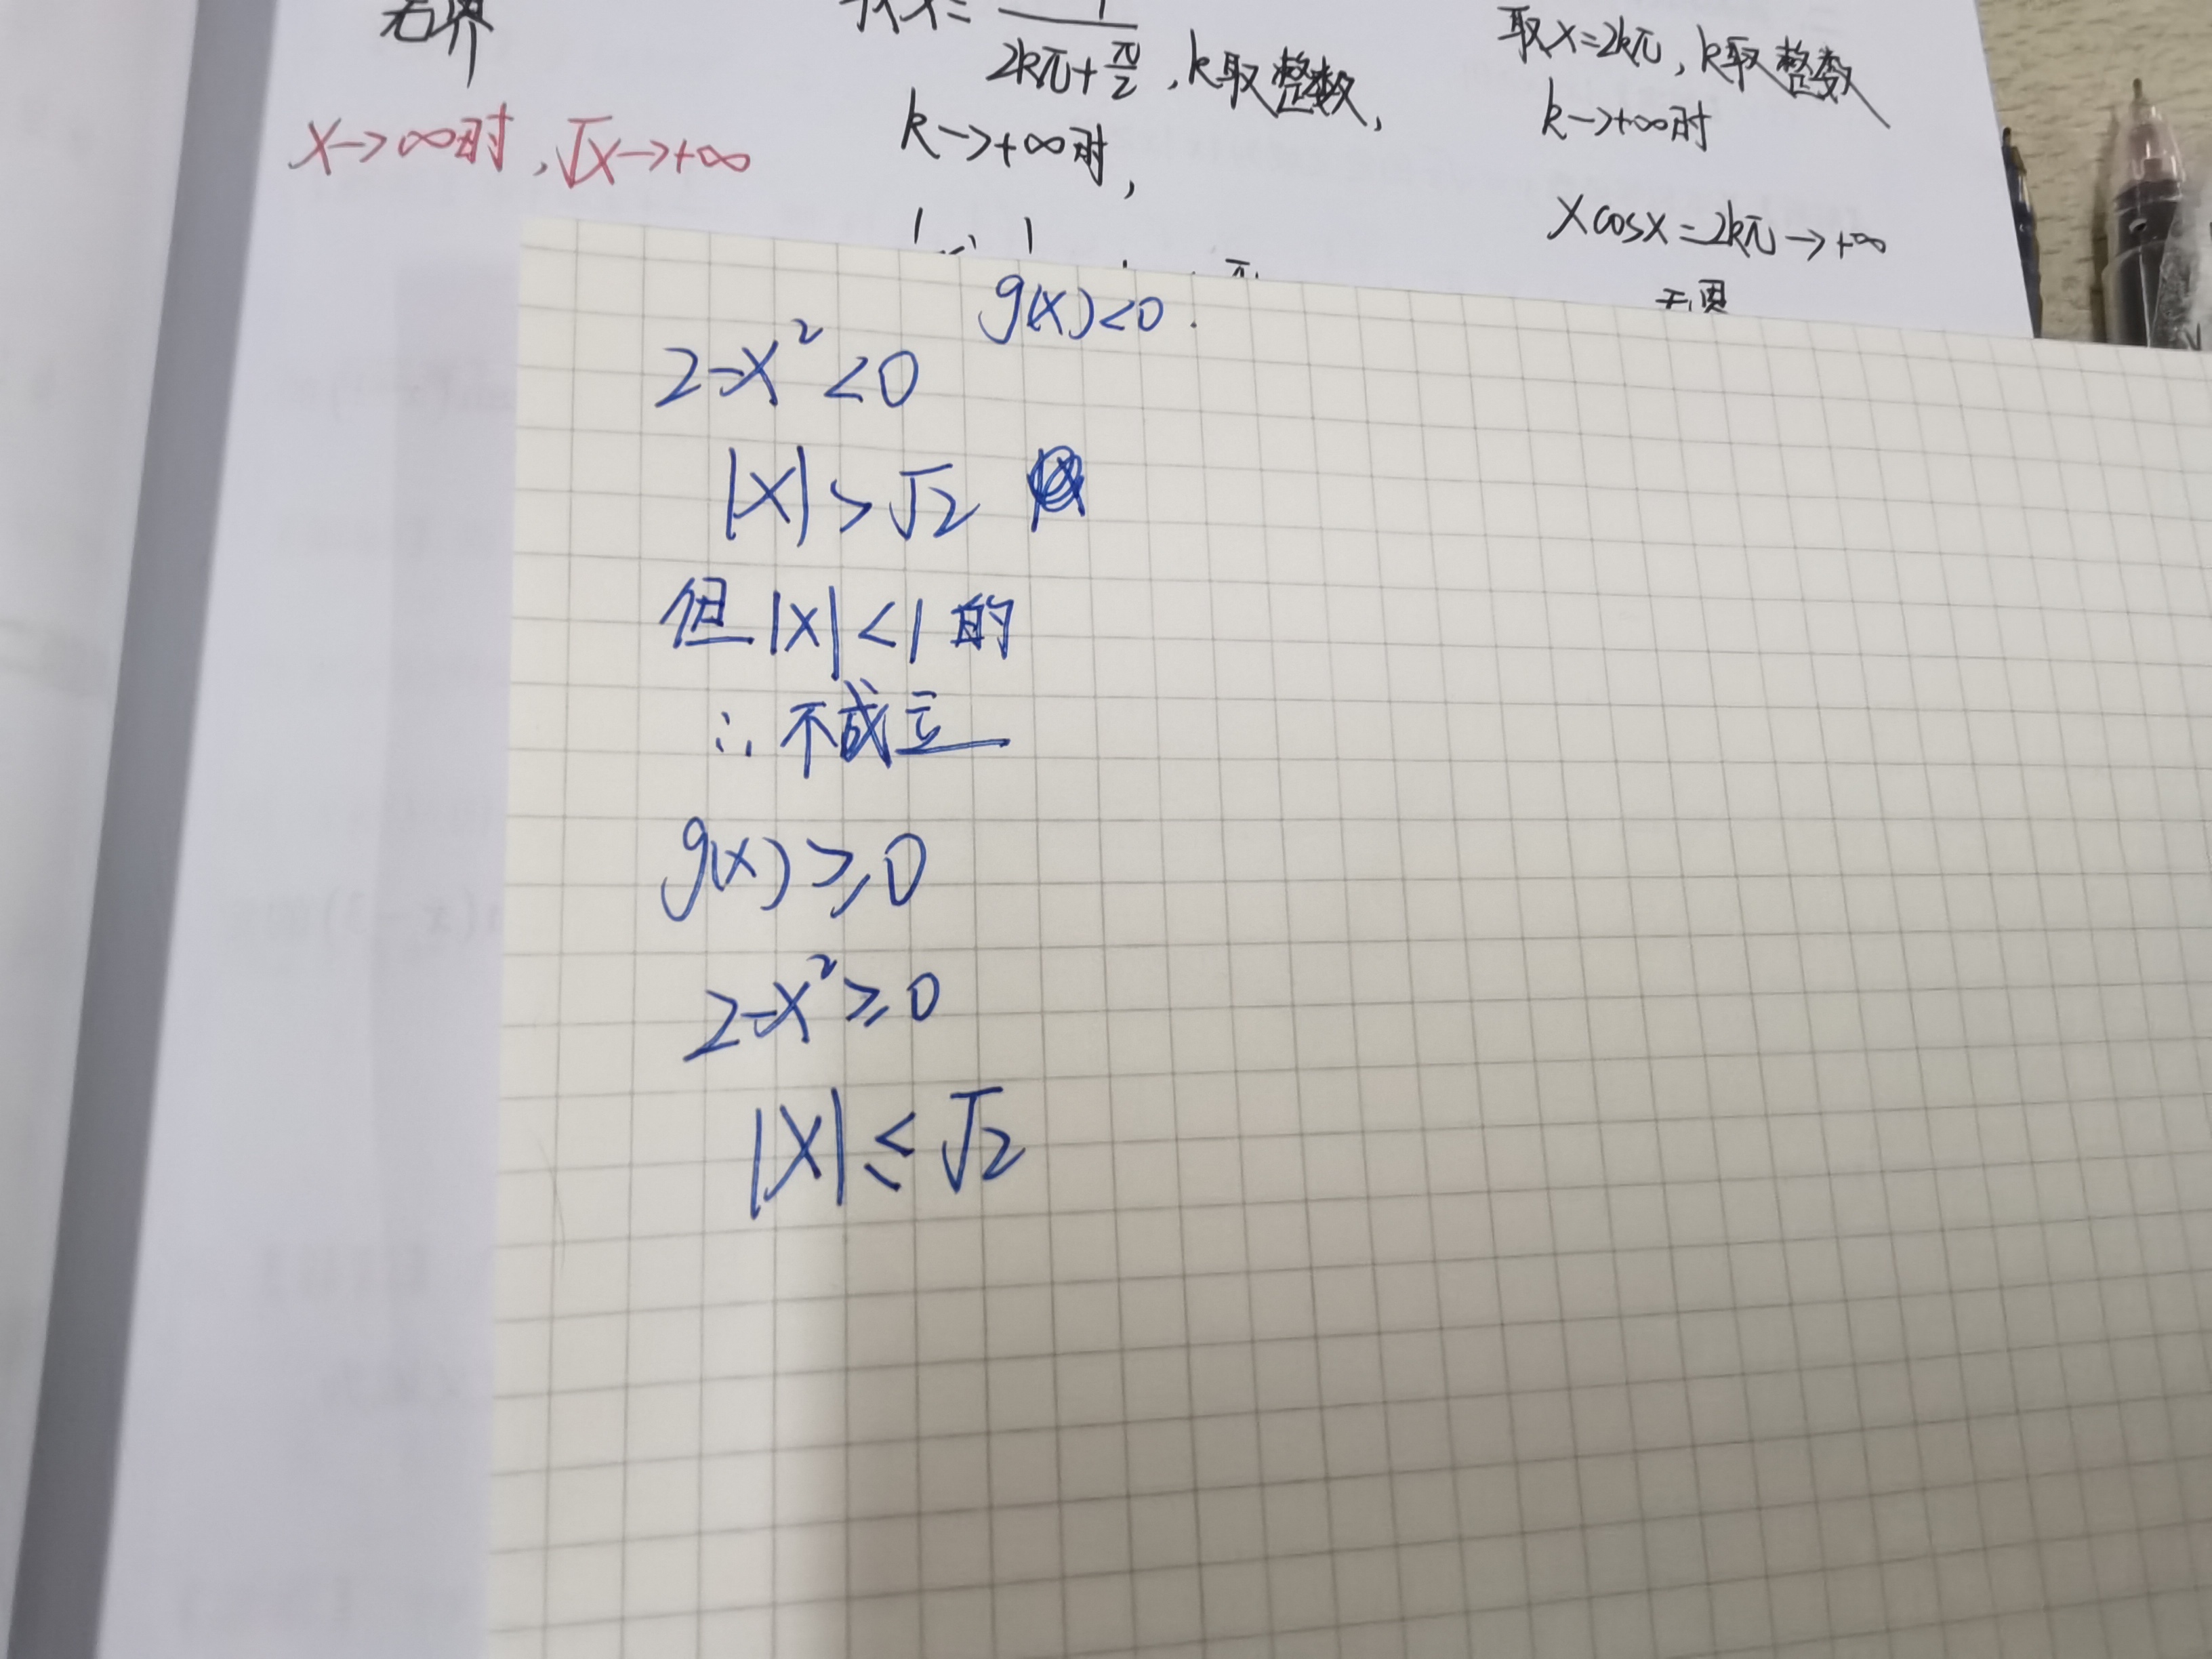 无界
x→∞时,√x→+∞
2kπ+π/2,k取整数,
k→+∞时,
取x=2kπ,k取整数
k→+∞时
xcosx=2kπ→+∞
g(x)<0.
2-x²<0
|x|>√2
但|x|<1的
∴不成立
g(x)≥0
2-x²≥0
|x|≤√2